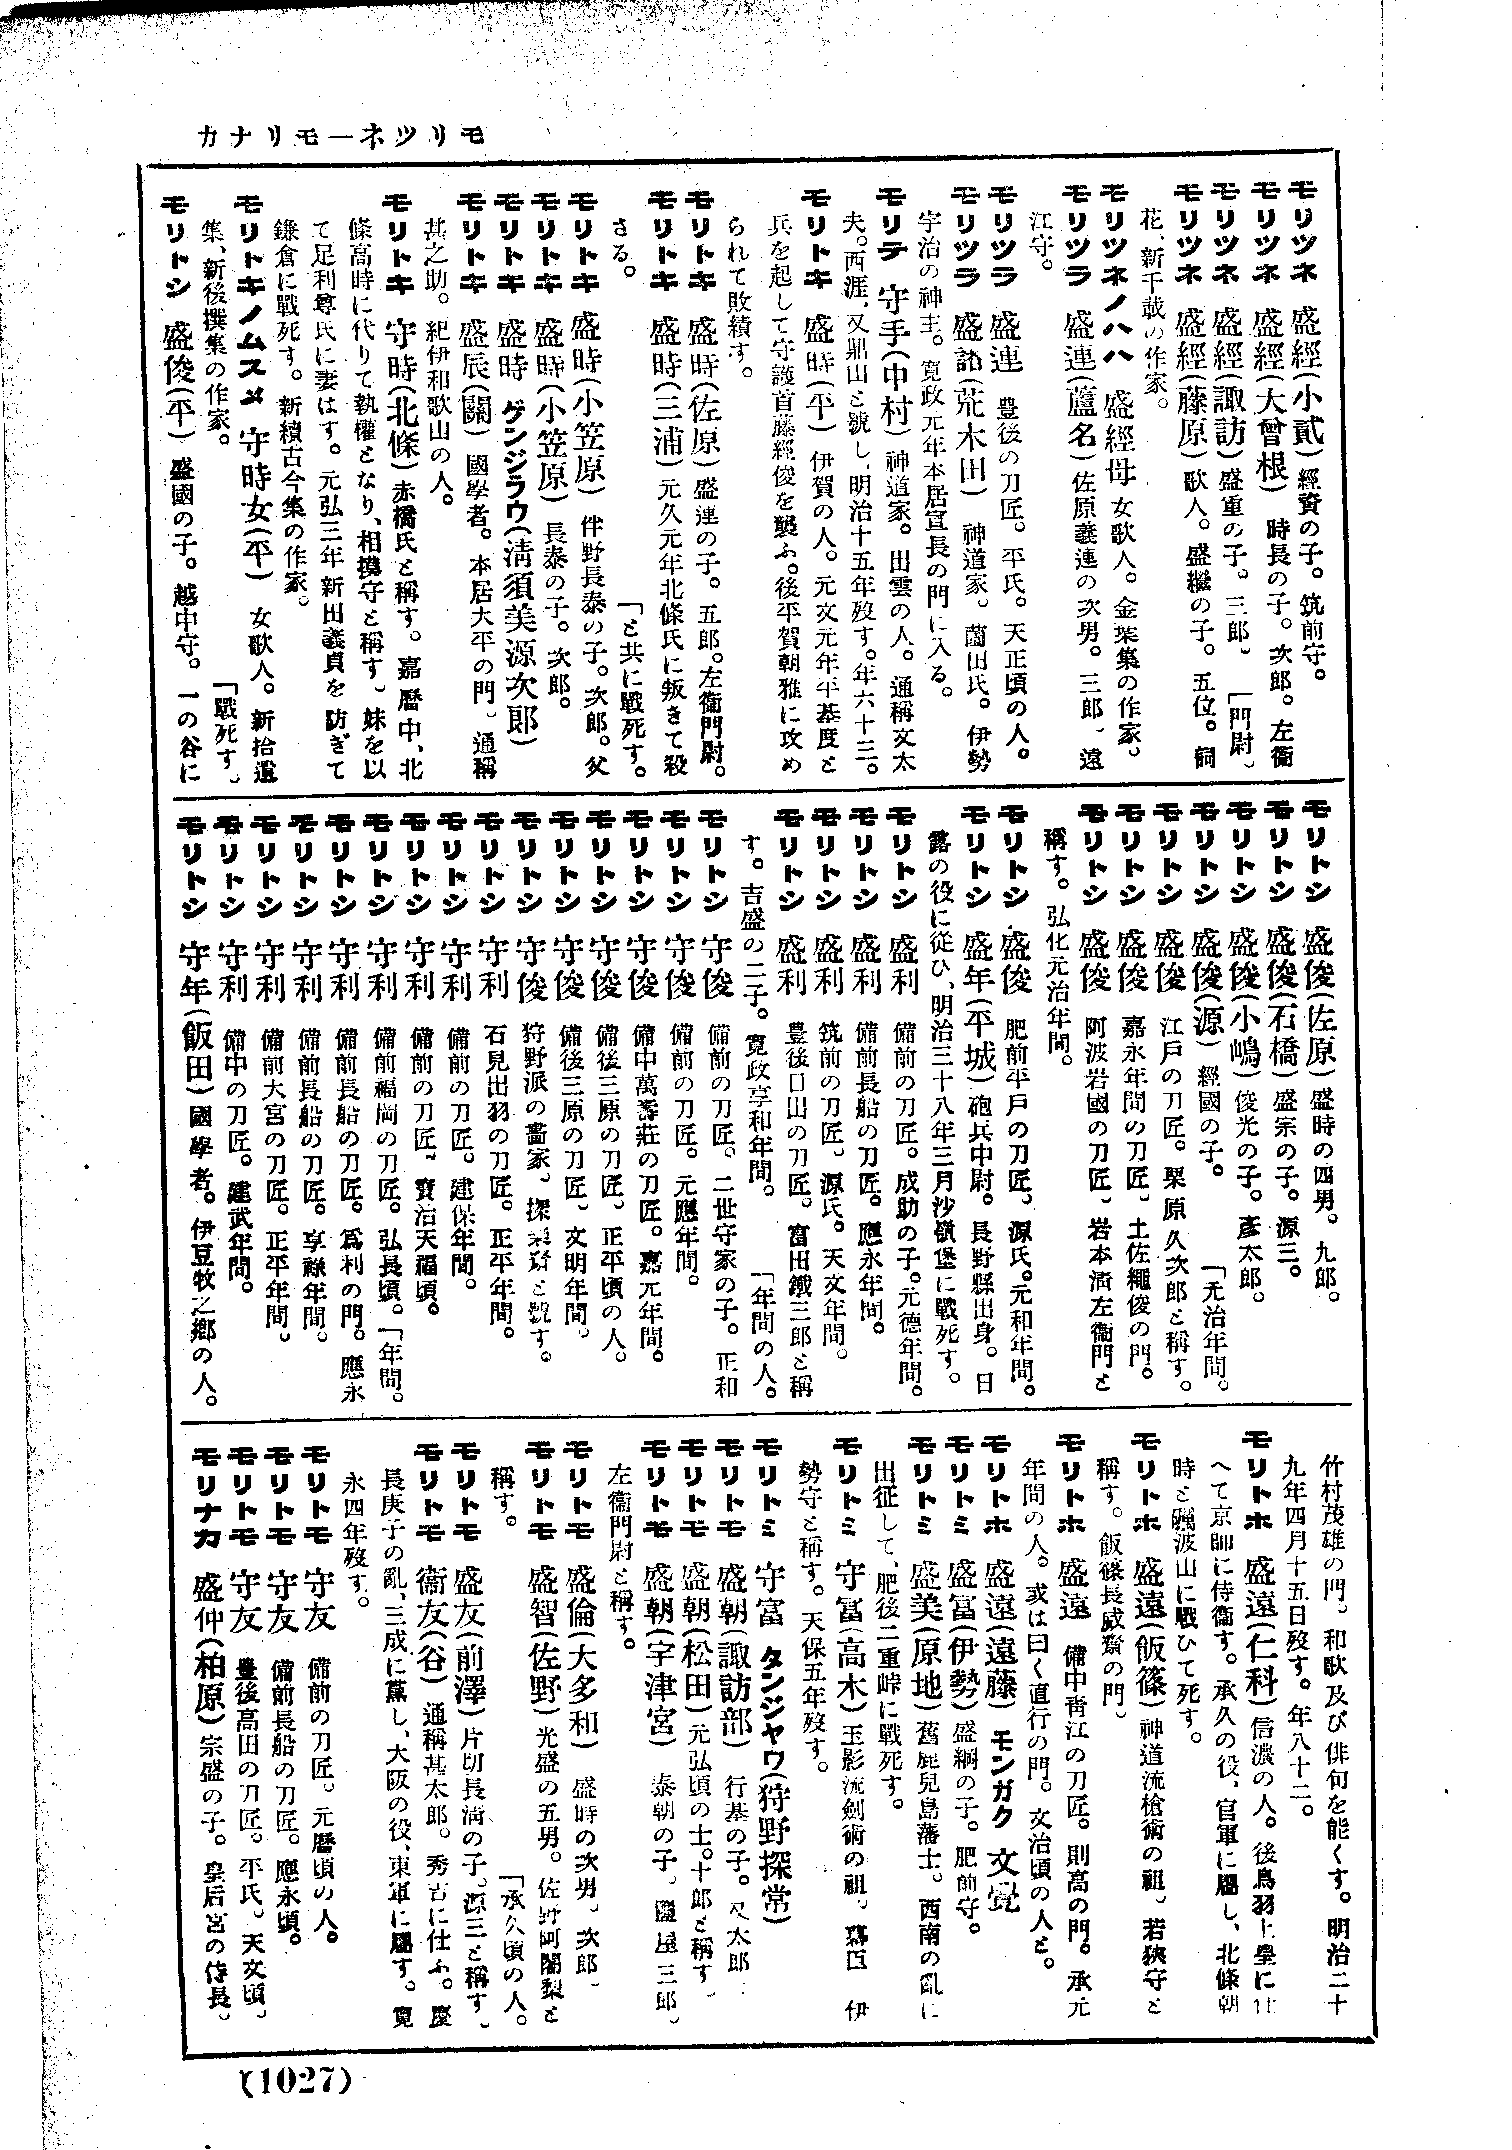 モリツネ―モリナカ
モリツネ 盛經(小貳) 經資の子。筑前守。
モリツネ 盛經(大曾根) 時長の子。次郎。左衞
モリツネ 盛經(諏訪) 盛重の子。三郎。 「門尉。
モリツネ 盛經(藤原) 歌人。盛繼の子。五位。詞
花、新千載の作家。
モリツネノハハ 盛經母 女歌人。金葉集の作家。
モリツラ 盛連(蘆名) 佐原義連の次男。三郎、遠
江守。
モリツラ 盛連 豊後の刀匠。平氏。天正頃の人。
モリツラ 盛諂(荒木田) 神道家。薗田氏。伊勢
宇治の神主。寛政元年本居宣長の門に入る。
モリテ 守手(中村) 神道家。出雲の人。通稱文太
夫。西涯、又鼎山と號し、明治十五年歿す。年六十三。
モリトキ 盛時(平) 伊賀の人。元文元年平基度と
兵を起して守護首藤經俊を襲ふ。後平賀朝雅に攻め
られて敗績す。
モリトキ 盛時(佐原) 盛連の子。五郎。左衞門尉。
モリトキ 盛時(三浦) 元久元年北條氏に叛きて殺
さる。 「と共に戰死す。
モリトキ 盛時(小笠原) 伴野長泰の子。次郎。父
モリトキ 盛時(小笠原) 長泰の子。次郎。
モリトキ 盛時 ゲンジラウ(淸須美源次郎)
モリトキ 盛辰(關) 國學者。本居大平の門。通稱
甚之助。紀伊和歌山の人。
モリトキ 守時(北條) 赤橋氏と稱す。嘉曆中、北
條高時に代りて執權となり、相摸守と稱す。妹を以
て足利尊氏に妻はす。元弘三年新田義貞を防ぎて
鎌倉に戰死す。新續古今集の作家。
モリトキノムスメ 守時女(平) 女歌人。新拾遺
集、新後撰集の作家。 「戰死す。
モリトシ 盛俊(平) 盛國の子。越中守。一の谷に
モリトシ 盛俊(佐原) 盛時の四男。九郎。
モリトシ 盛俊(石橋) 盛宗の子。源三。
モリトシ 盛俊(小嶋) 俊光の子。彥太郎。
モリトシ 盛俊(源) 經國の子。 「元治年間。
モリトシ 盛俊 江戸の刀匠。栗原久次郎と稱す。
モリトシ 盛俊 嘉永年間の刀匠。土佐繩俊の門。
モリトシ 盛俊 阿波岩國の刀匠。岩本淸左衞門と
稱す。弘化元治年間。
モリトシ 盛俊 肥前平戸の刀匠。源氏。元和年間。
モリトシ 盛年(平城) 砲兵中尉。長野縣出身。日
露の役に従ひ、明治三十八年三月沙嶺堡に戰死す。
モリトシ 盛利 備前の刀匠。成助の子。元德年間。
モリトシ 盛利 備前長船の刀匠。應永年間。
モリトシ 盛利 筑前の刀匠。源氏。天文年間。
モリトシ 盛利 豊後日出の刀匠。富田鐵三郎と稱
す。吉盛の二子。寛政享和年間。 「年間の人。
モリトシ 守俊 備前の刀匠。二世守家の子。正和
モリトシ 守俊 備前の刀匠。元應年間。
モリトシ 守俊 備中萬壽莊の刀匠。嘉元年間。
モリトシ 守俊 備後三原の刀匠。正平頃の人。
モリトシ 守俊 備後三原の刀匠。文明年間。
モリトシ 守俊 狩野派の畵家。探梁齋と號す。
モリトシ 守利 石見出羽の刀匠。正平年間。
モリトシ 守利 備前の刀匠。建保年間。
モリトシ 守利 備前の刀匠。寳治天福頃。
モリトシ 守利 備前福岡の刀匠。弘長頃。「年間。
モリトシ 守利 備前長船の刀匠。爲利の門。應永
モリトシ 守利 備前長船の刀匠。享祿年間。
モリトシ 守利 備前大宮の刀匠。正平年間。
モリトシ 守利 備中の刀匠。建武年間。
モリトシ 守年(飯田) 國學者。伊豆牧之鄕の人。
竹村茂雄の門。和歌及び俳句を能くす。明治二十
九年四月十五日歿す。年八十二。
モリトホ 盛遠(仁科) 信濃の人。後鳥羽上皇に仕
へて京師に侍衞す。承久の役、官軍に屬し、北條朝
時と礪波山に戰ひて死す。
モリトホ 盛遠(飯篠) 神道流槍術の祖。若狹守と
稱す。飯篠長威齋の門。
モリトホ 盛遠 備中靑江の刀匠。則高の門。承元
年間の人。或は曰く直行の門。文治頃の人と。
モリトホ 盛遠(遠藤) モンガク 文覺
モリトミ 盛富(伊勢) 盛綱の子。肥前守。
モリトミ 盛美(原地) 舊鹿兒島藩士。西南の亂に
出征して、肥後二重峠に戰死す。
モリトミ 守富(高木) 玉影流劍術の祖。幕臣 伊
勢守と稱す。天保五年歿す。
モリトミ 守富 タンジヤウ(狩野探常)
モリトモ 盛朝(諏訪部) 行基の子。又太郎。
モリトモ 盛朝(松田) 元弘頃の士。十郎と稱す。
モリトモ 盛朝(宇津宮) 泰朝の子。鹽屋三郎。
左衞門尉と稱す。
モリトモ 盛倫(大多和) 盛時の次男。次郎。
モリトモ 盛智(佐野) 光盛の五男。佐野阿闍梨と
稱す。 「承久頃の人。
モリトモ 盛友(前澤) 片切長淸の子。源三と稱す。
モリトモ 衞友(谷) 通稱甚太郎。秀吉に仕ふ。慶
長庚子の亂、三成に黨し、大阪の役、東軍に屬す。寛
永四年歿す。
モリトモ 守友 備前の刀匠。元曆頃の人。
モリトモ 守友 備前長船の刀匠。應永頃。
モリトモ 守友 豊後高田の刀匠。平氏。天文頃。
モリナカ 盛仲(柏原) 宗盛の子。皇后宮の侍長。
(1027)